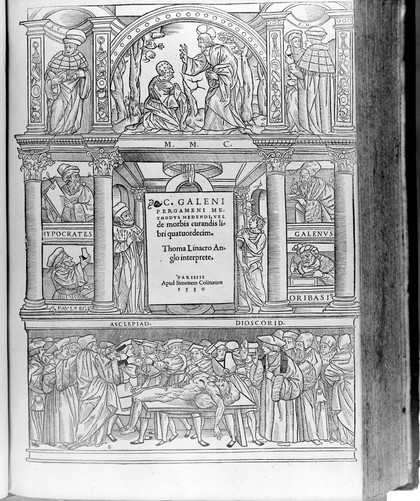 M. M. C.
C. GALENI
PERGAMENI ME-
THODVS MEDENDI, VEL
de morbis curandis li-
bri quatuordecim.
Thoma Linacro An-
glo interprete.
PARISIIS
Apud Simonem Colinaeum
1530
HYPOCRATES
GALENVS
A. PAVL9 EG
ORIBASI
ASCLEPIAD.
DIOSCORID.